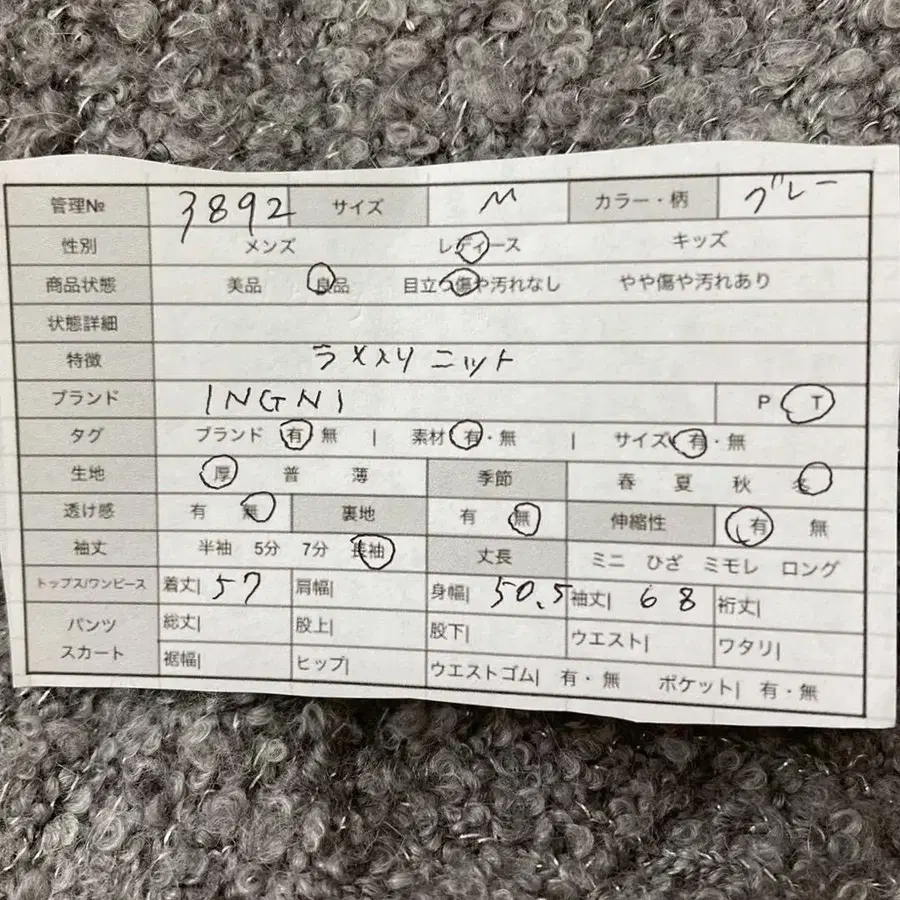 管理№ 3892 サイズ M カラー・柄 グレー
性別 メンズ レディース キッズ
商品状態 美品 良品 目立つ傷や汚れなし やや傷や汚れあり
状態詳細
特徴 ラメ入りニット
ブランド INGNI P T
タグ ブランド 有 無 | 素材 有・無 | サイズ 有・無
生地 厚 普 薄 季節 春 夏 秋 冬
透け感 有 無 裏地 有 無 伸縮性 有 無
袖丈 半袖 5分 7分 長袖 丈長 ミニ ひざ ミモレ ロング
トップス/ワンピース 着丈| 57 肩幅| 身幅| 50.5 袖丈| 68 裄丈|
パンツ スカート 総丈| 股上| 股下| ウエスト| ワタリ|
裾幅| ヒップ| ウエストゴム| 有・無 ポケット| 有・無